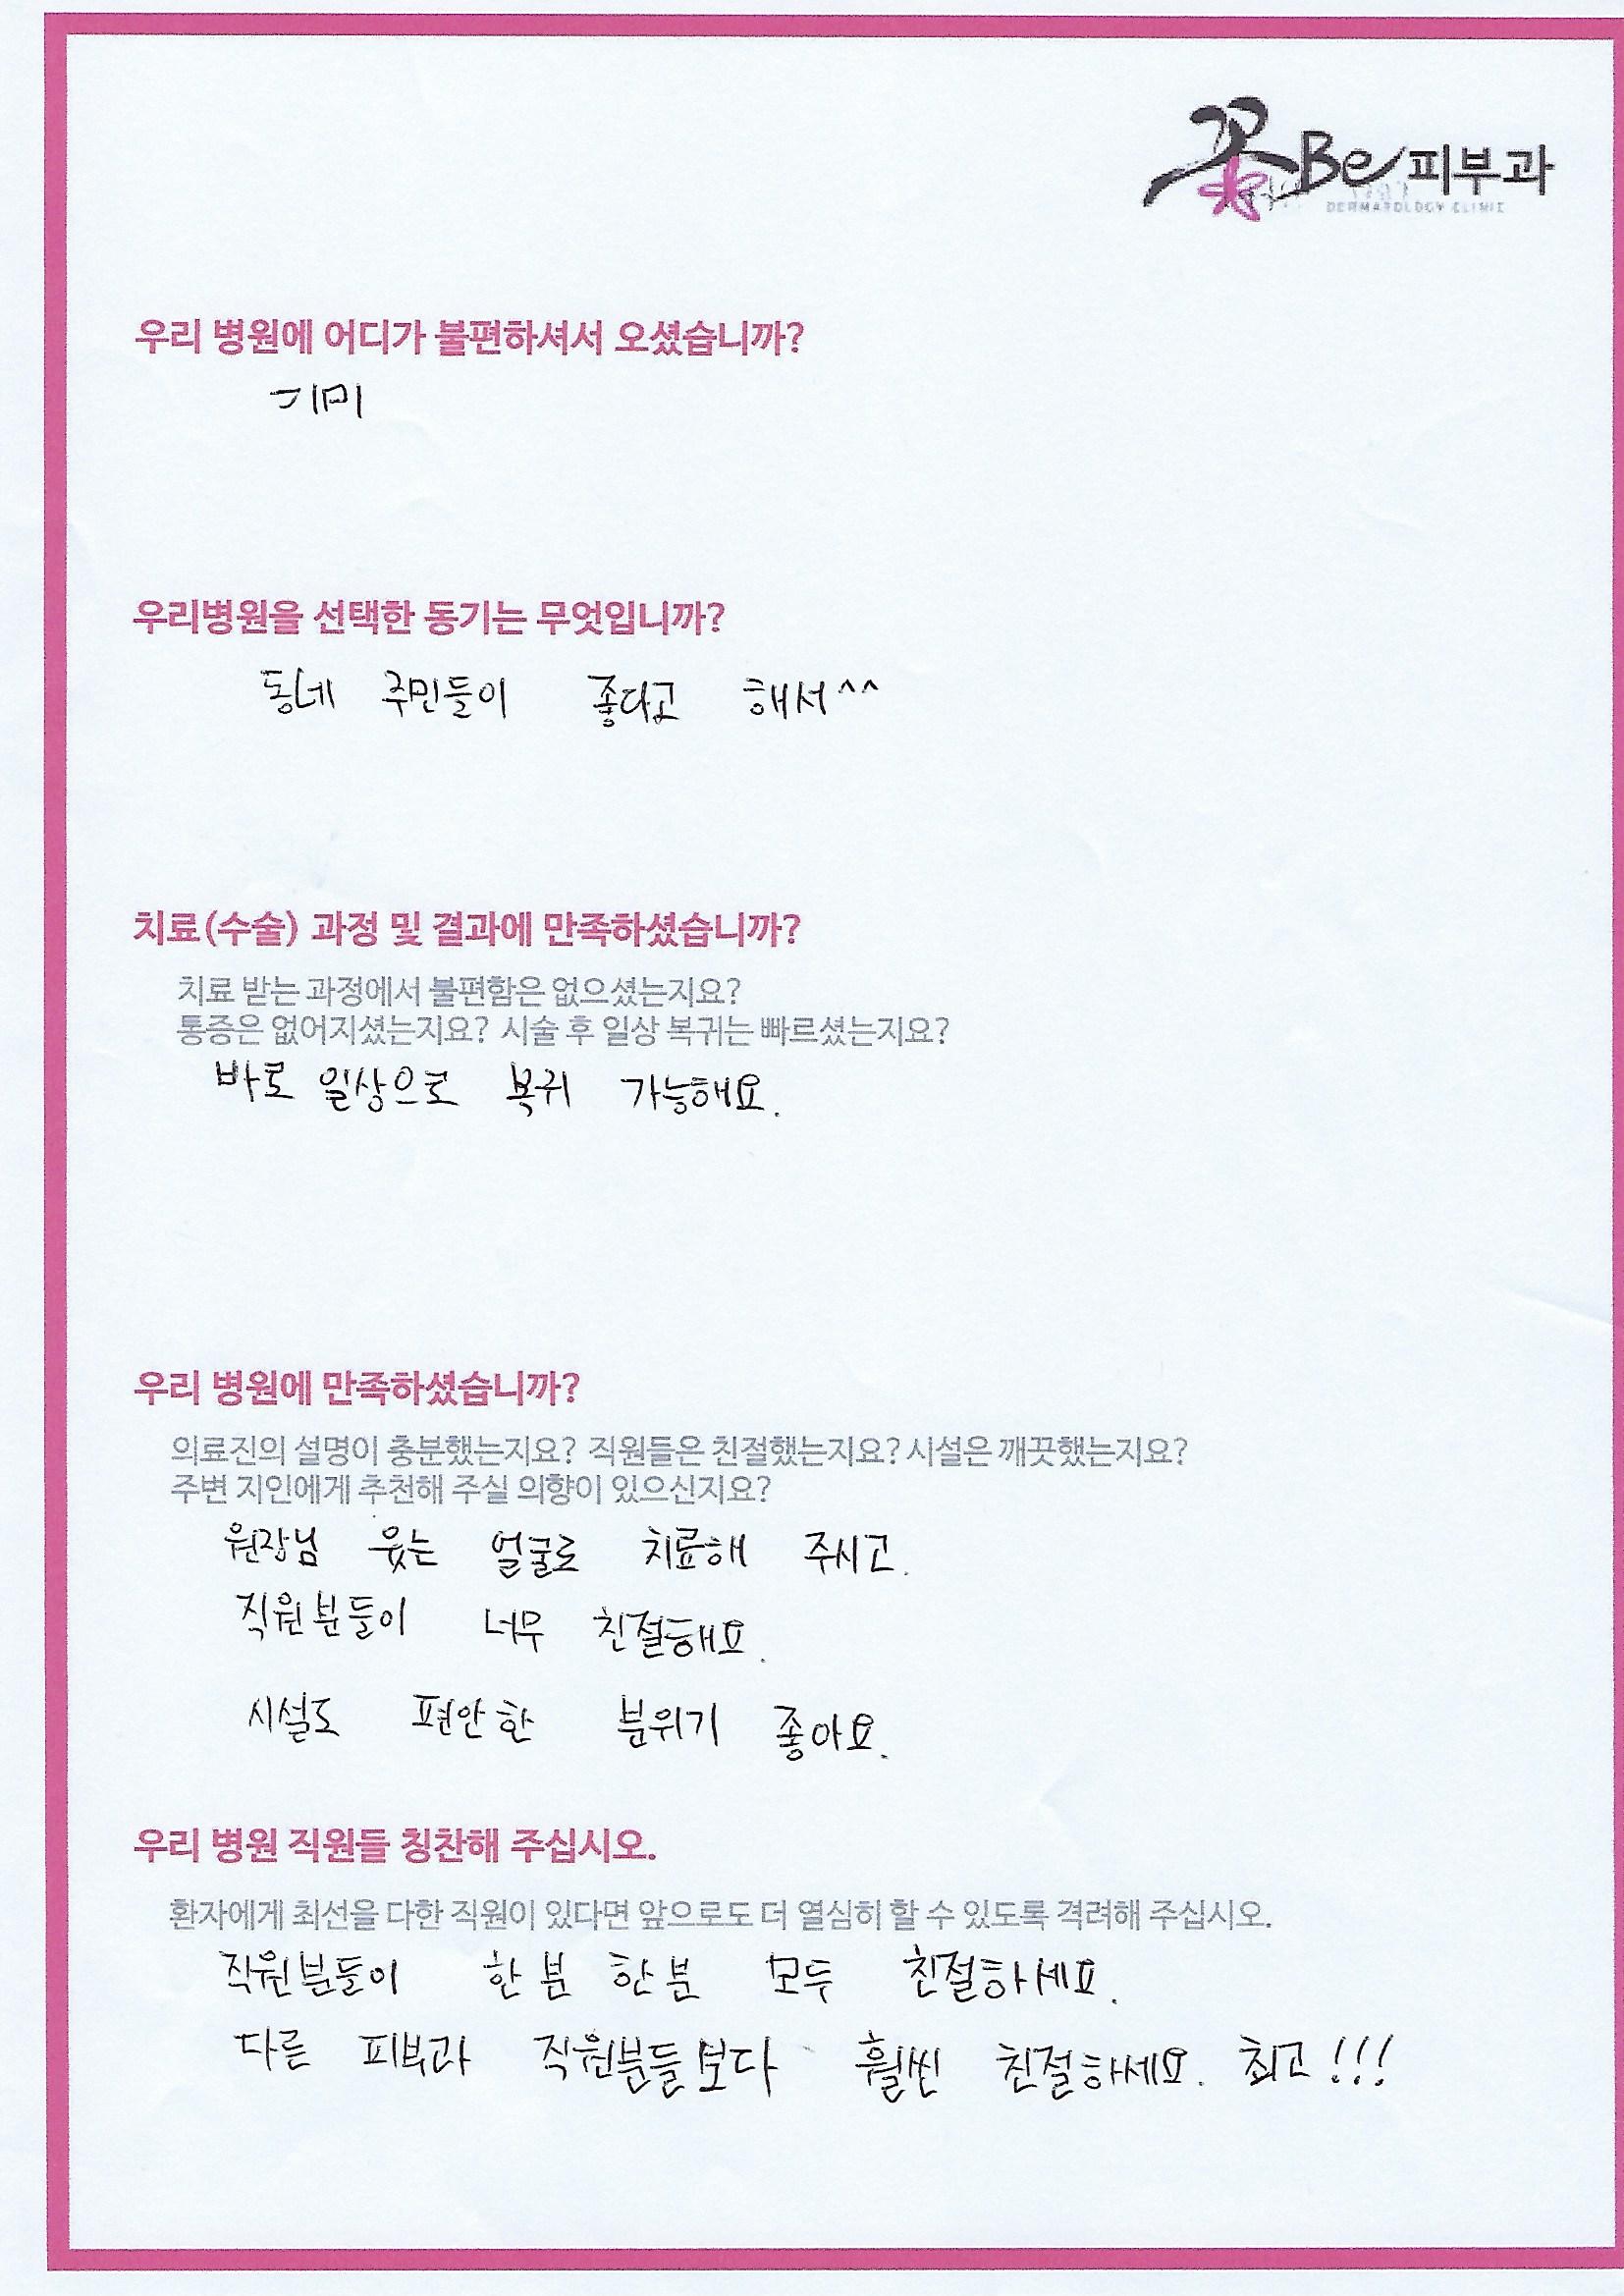 꽃Be피부과
DERMATOLOGY CLINIC
우리 병원에 어디가 불편하셔서 오셨습니까?
기미
우리병원을 선택한 동기는 무엇입니까?
동네 주민들이 좋다고 해서^^
치료(수술) 과정 및 결과에 만족하셨습니까?
치료 받는 과정에서 불편함은 없으셨는지요?
통증은 없어지셨는지요? 시술 후 일상 복귀는 빠르셨는지요?
바로 일상으로 복귀 가능해요.
우리 병원에 만족하셨습니까?
의료진의 설명이 충분했는지요? 직원들은 친절했는지요? 시설은 깨끗했는지요?
주변 지인에게 추천해 주실 의향이 있으신지요?
원장님 웃는 얼굴로 치료해 주시고.
직원분들이 너무 친절해요.
시설도 편안한 분위기 좋아요.
우리 병원 직원들 칭찬해 주십시오.
환자에게 최선을 다한 직원이 있다면 앞으로도 더 열심히 할 수 있도록 격려해 주십시오.
직원분들이 한분 한분 모두 친절하세요.
다른 피부과 직원분들보다 훨씬 친절하세요. 최고!!!